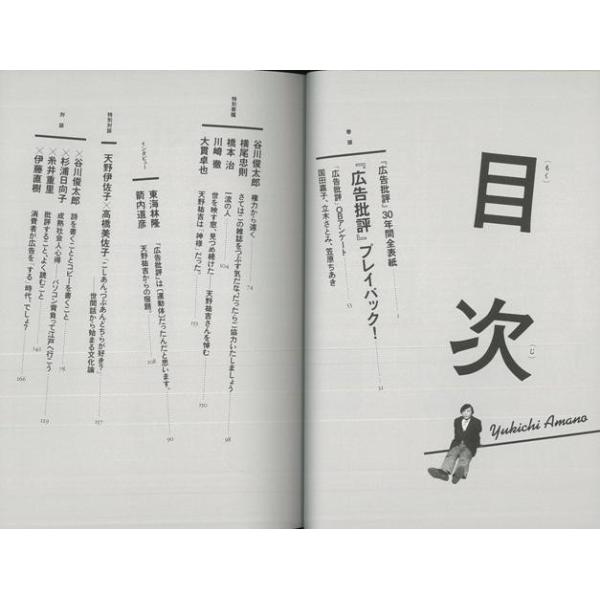 目次
（もく）
（じ）
Yukichi Amano
巻頭
『広告批評』30年間全表紙 1
『広告批評』プレイバック！ 31
『広告批評』OBアンケート 53
国田嘉子、立木さとみ、笠原ちあき
特別寄稿
谷川俊太郎 権力から遠く 74
横尾忠則 さてはこの雑誌をつぶす気だな。だったらご協力いたしましょう 98
橋本 治 一流の人 104
川崎 徹 世を映す窓、見つめ続けた 天野祐吉さんを悼む 150
大貫卓也 天野祐吉は「神様」だった。 153
インタビュー
東海林隆 『広告批評』は〔運動体〕だったんだと思います。 90
箭内道彦 天野祐吉からの宿題。 108
特別対談
天野伊佐子×高橋美佐子 「こしあん、つぶあん、どちらが好き？」
世間話から始まる文化論 157
対談
×谷川俊太郎 詩を書くこととコピーを書くこと 76
×杉浦日向子 成熟社会人心得 パソコン背負って江戸へ行こう 119
×糸井重里 批評すること、よく読むこと 142
×伊藤直樹 消費者が広告を「する」時代、でしょう 166